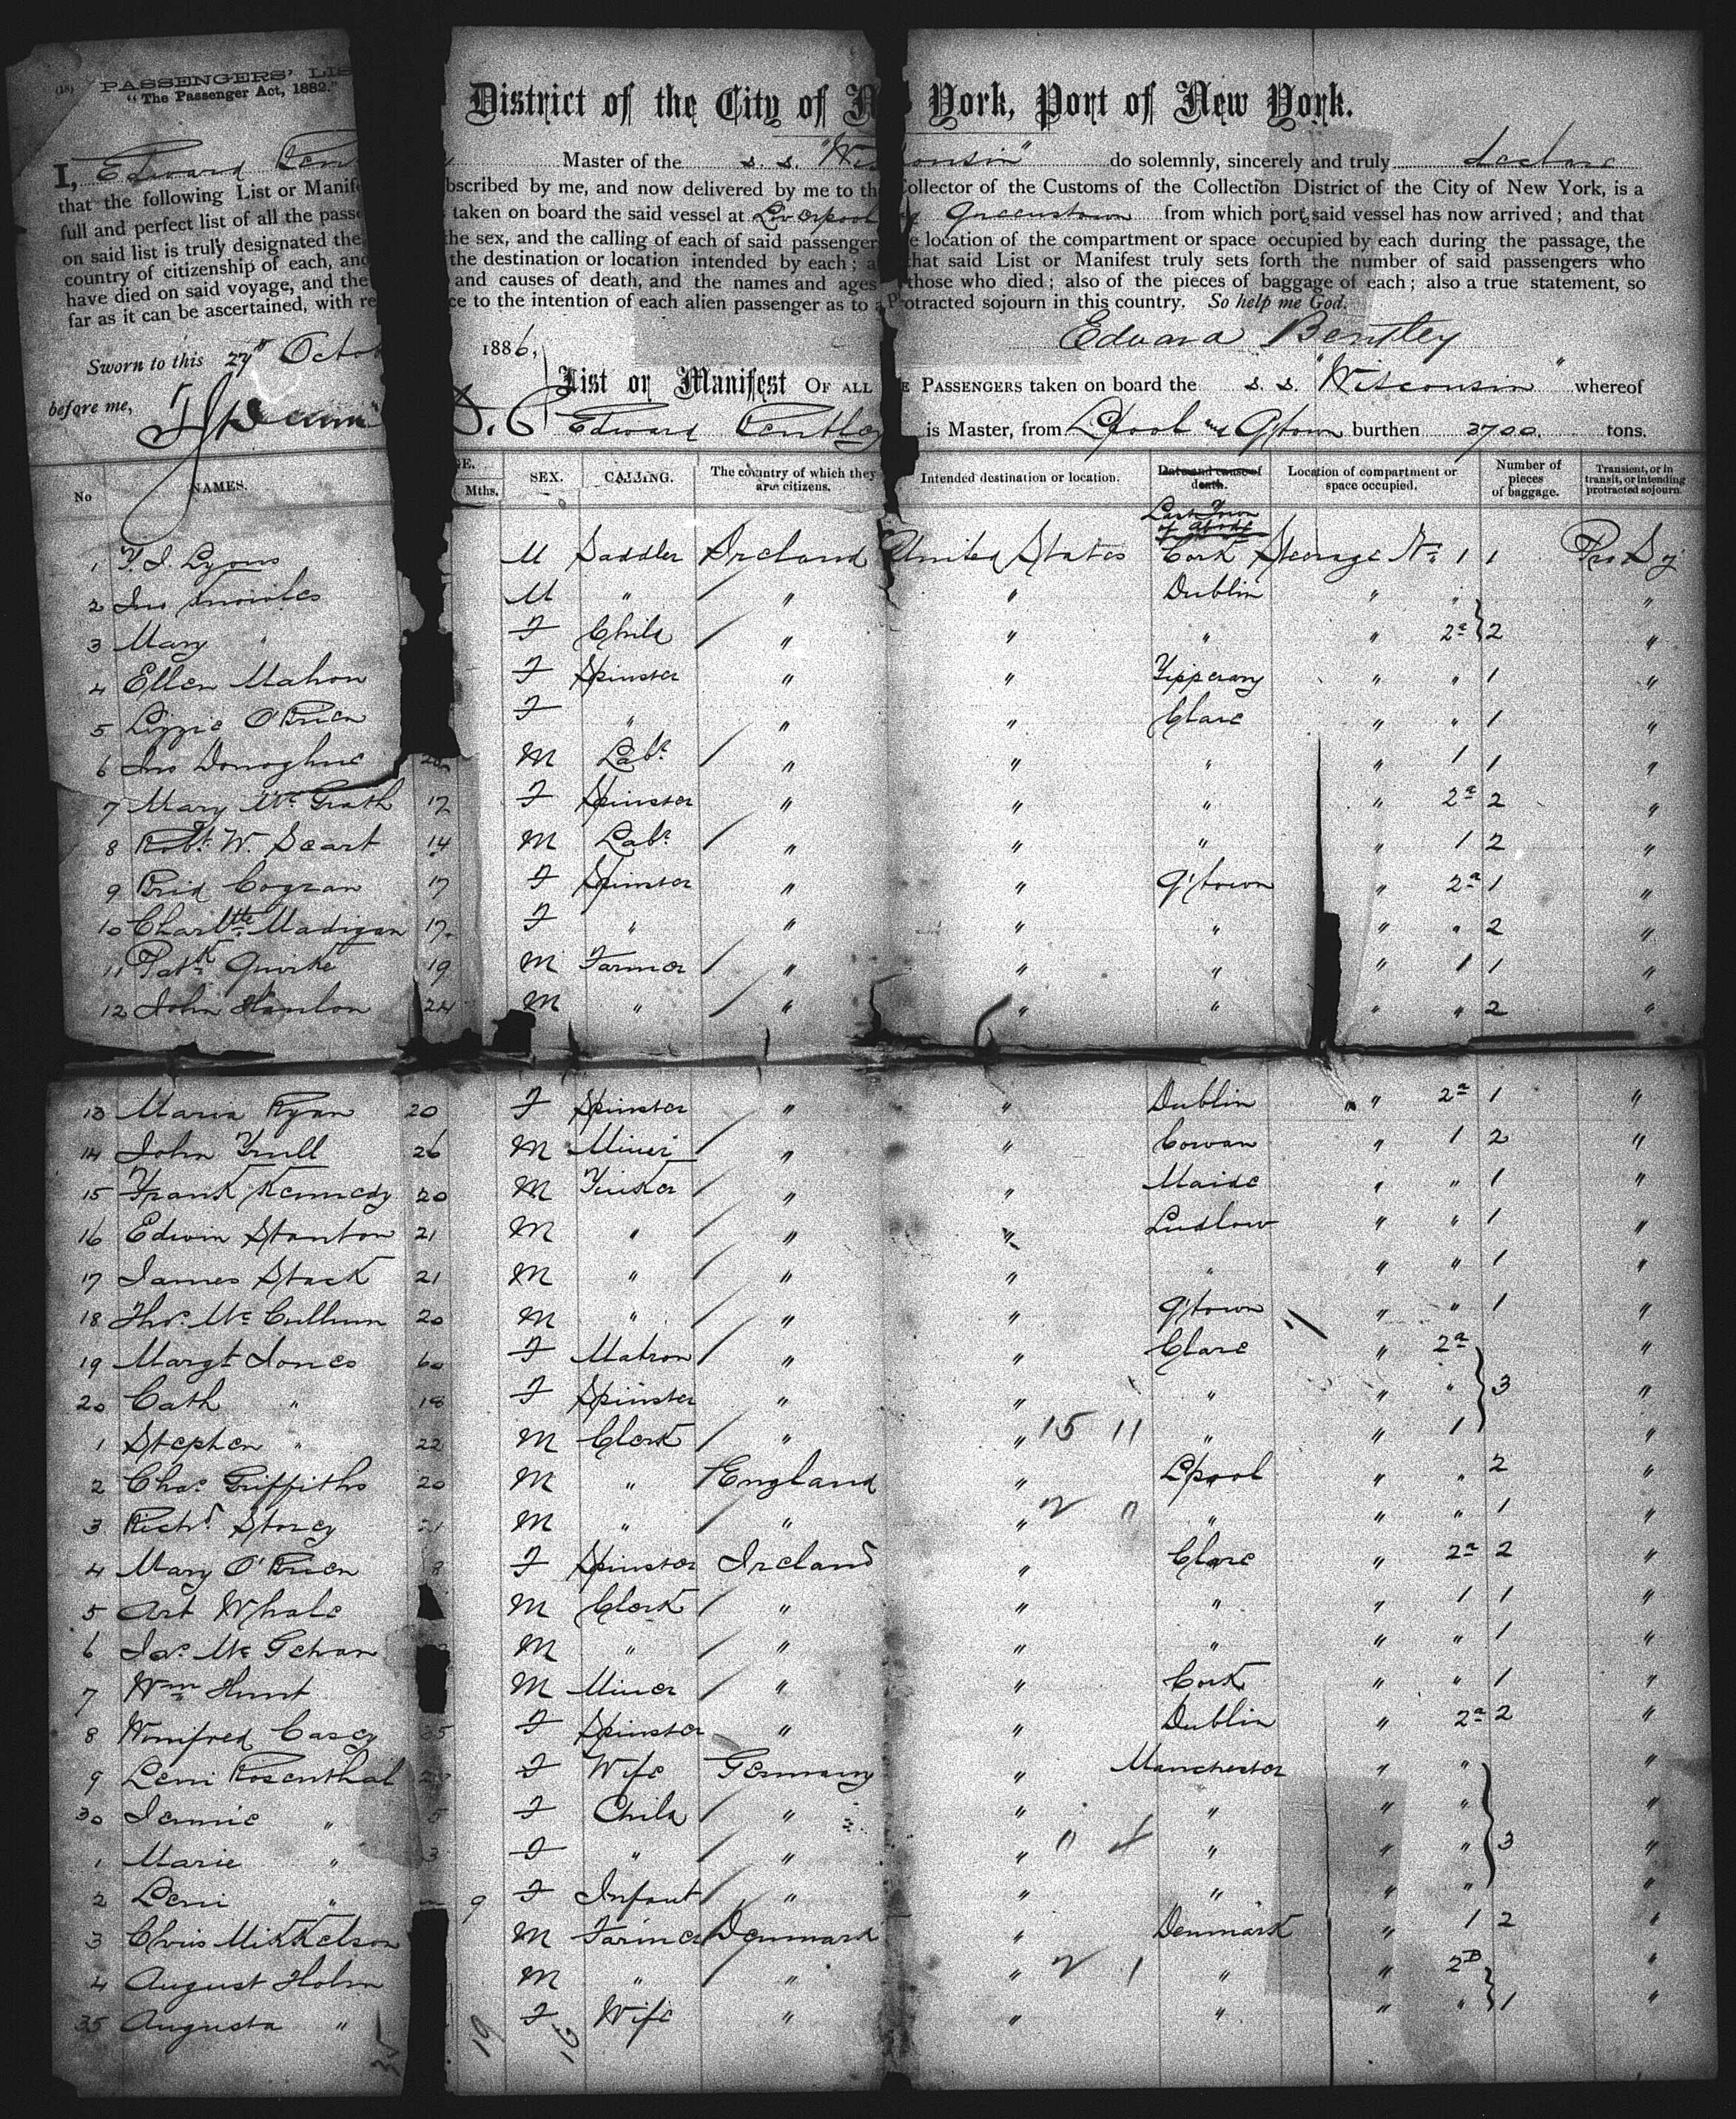 (18) PASSENGERS' LIS
"The Passenger Act, 1882."
District of the City of N York, Port of New York.
I, Edward Ben Master of the s. s. "Wis consin" do solemnly, sincerely and truly declare
that the following List or Manif bscribed by me, and now delivered by me to th Collector of the Customs of the Collection District of the City of New York, is a
full and perfect list of all the passe taken on board the said vessel at Liverpool Queenstown from which port, said vessel has now arrived; and that
on said list is truly designated the the sex, and the calling of each of said passenger e location of the compartment or space occupied by each during the passage, the
country of citizenship of each, and the destination or location intended by each; a that said List or Manifest truly sets forth the number of said passengers who
have died on said voyage, and the and causes of death, and the names and ages those who died; also of the pieces of baggage of each; also a true statement, so
far as it can be ascertained, with re ce to the intention of each alien passenger as to a Protracted sojourn in this country. So help me God.
Edward Bentley
Sworn to this 27th Octo 1886,
List or Manifest OF ALL E PASSENGERS taken on board the s. s. "Wisconsin" whereof
before me, D. C Edward Bentley is Master, from L'pool and Q'town burthen 3700. tons.
No NAMES. GE. Mths. SEX. CALLING. The country of which they are citizens. Intended destination or location. Date and cause of death. Location of compartment or space occupied. Number of pieces of baggage. Transient, or in transit, or intending protracted sojourn.
Last Town of abode
1 T. J. Lyons M Saddler Ireland United States Cork Steerage No 1 1 Pro Soj
2 Jno Knowles M " / " " Dublin " " "
3 Mary " F Child / " " " " 2a } 2 "
4 Ellen Mahon F Spinster " " Tipperary " " 1 "
5 Lizzie O'Brien F " " " Clare " " 1 "
6 Jno Donoghue 20 M Labr / " " " " 1 1 "
7 Mary McGrath 17 F Spinster " " " " 2a 2 "
8 Robt W. Scart 14 M Labr / " " " " 1 2 "
9 Brid Cogran 17 F Spinster " " Q'town " 2a 1 "
10 Charltte Madigan 17 F " " " " " " 2 "
11 Patk Quirke 19 M Farmer / " " " " 1 1 "
12 John Hanlon 24 M " / " " " " " 2 "
13 Maria Ryan 20 F Spinster " " Dublin " 2a 1 "
14 John Trull 26 M Miner / " " Cowan " 1 2 "
15 Frank Kennedy 20 M Tinker / " " Maide " " 1 "
16 Edwin Stanton 21 M " / " " Ludlow " " 1 "
17 James Stack 21 M " / " " " " " 1 "
18 Thos McCullum 20 M " / " " Q'town " " 1 "
19 Margt Jones 60 F Matron / " " Clare " 2a "
20 Cath " 18 F Spinster " " " " " } 3 "
1 Stephen " 22 M Clerk / " " 15 11 " " 1 "
2 Chas Griffiths 20 M " / England " L'pool " " 2 "
3 Richd Storey 21 M " / " " 2 0 " " " 1 "
4 Mary O'Brien 8 F Spinster Ireland " Clare " 2a 2 "
5 Art Whale M Clerk / " " " " 1 1 "
6 Jas McGehan M " / " " " " " 1 "
7 Wm Hunt M Miner / " " Cork " " 1 "
8 Winifred Casey 35 F Spinster " " Dublin " 2a 2 "
9 Leni Rosenthal F Wife Germany " Manchester " " "
30 Jennie " 5 F Child / " " " " " "
1 Marie " 3 F " / " " 0 4 " " " } 3 "
2 Leni " 9 F Infant / " " " " " "
3 Chris Mikkelson M Farmer / Denmark " Denmark " 1 2 "
4 August Holm M " / " " 2 1 " " 2B "
35 Augusta " F Wife " " " " " } 1 "
35 19 16